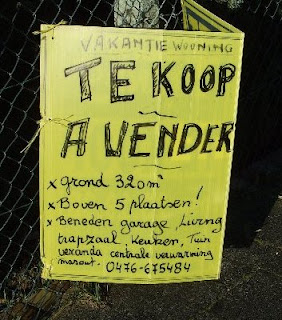 VAKANTIE WOONING
TE KOOP
A VENDER
x grond 320m²
x Boven 5 plaatsen!
x Beneden garage, Living
trapzaal, Keuken, Tuin
veranda centrale verwarming
mazout. 0476-675484